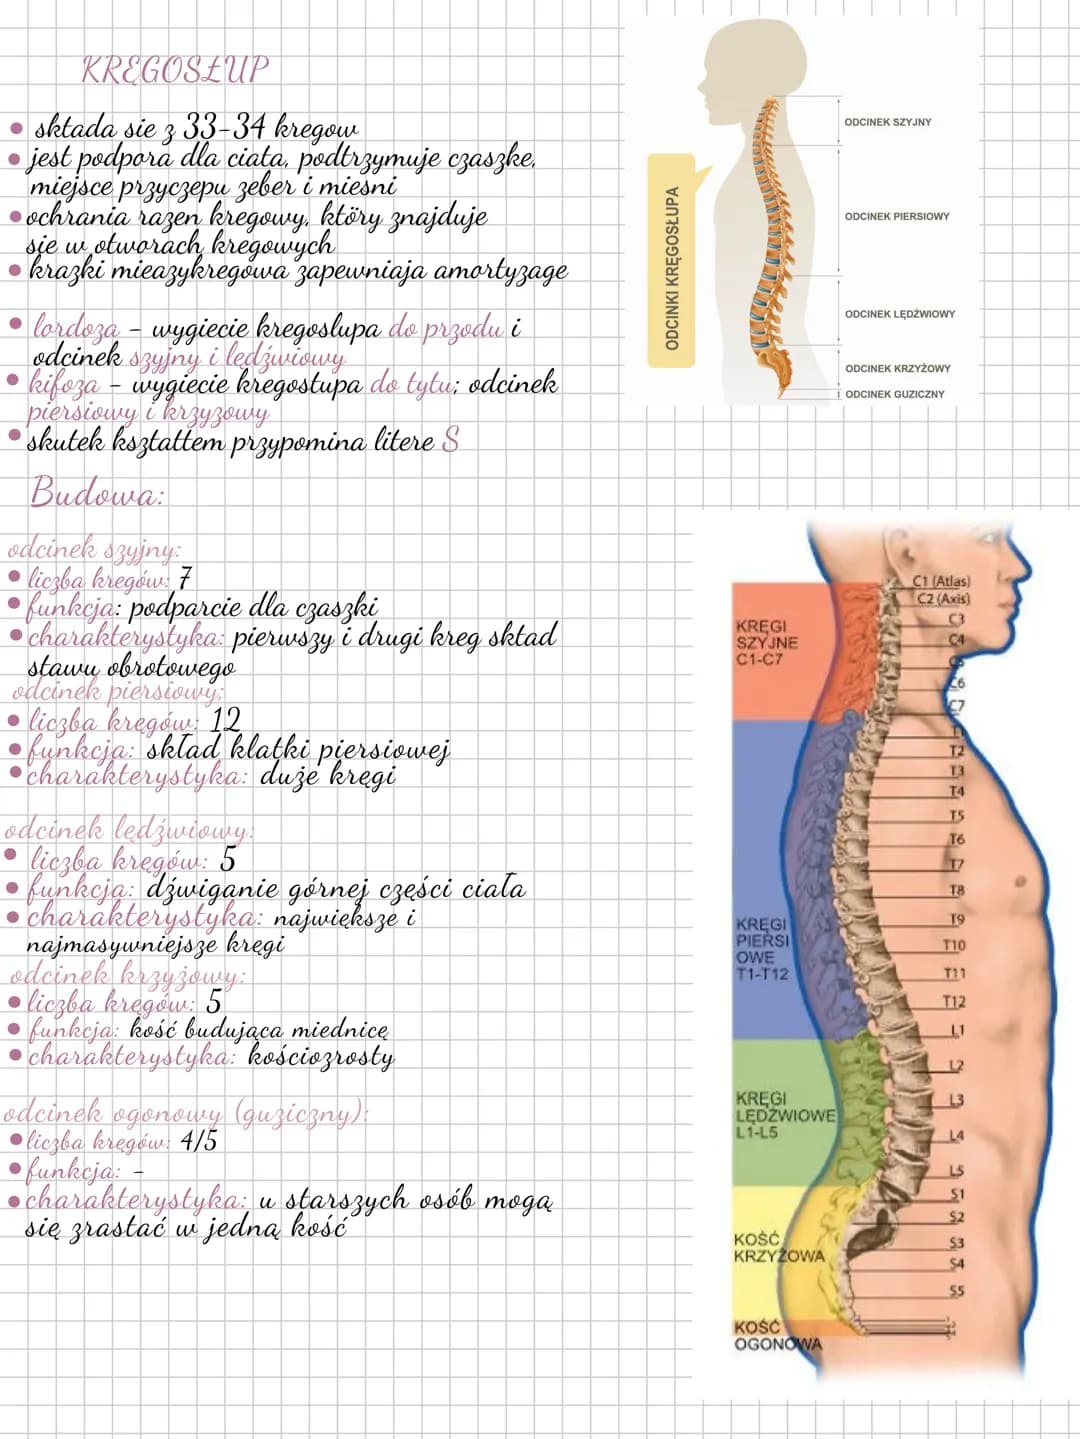 KRĘGOSŁUP
• składa sie z 33-34 kregow
• jest podpora dla ciała, podtrzymuje czaszke,
miejsce przyczepu zeber i miesni
• ochrania razen kregowy, który znajduje
sie w otworach kregowych
• krazki mieazykregowa zapewniaja amortyzage
• lordoza - wygiecie kregoslupa do przodu i
odcinek szyjny i ledźwiowy
• kifoza - wygiecie kregosłupa do tyłu; odcinek
piersiowy i krzyzowy
• skutek kształtem przypomina litere S
Budowa:
odcinek szyjny:
• liczba kręgów: 7
• funkcja: podparcie dla czaszki
• charakterystyka: pierwszy i drugi kreg skład
stawu obrotowego
odcinek piersiowy:
• liczba kręgów: 12
• funkcja: skład klatki piersiowej
• charakterystyka: duże kręgi
odcinek lędźwiowy:
• liczba kręgów: 5
• funkcja: dźwiganie górnej części ciała
• charakterystyka: największe i
najmasywniejsze kręgi
odcinek krzyżowy:
• liczba kręgów: 5
• funkcja: kość budująca miednicę
• charakterystyka: kościozrosty
odcinek ogonowy (guziczny):
• liczba kręgów: 4/5
• funkcja: -
• charakterystyka: u starszych osób mogą
się zrastać w jedną kość
ODCINKI KRĘGOSŁUPA
ODCINEK SZYJNY
ODCINEK PIERSIOWY
ODCINEK LĘDŹWIOWY
ODCINEK KRZYŻOWY
ODCINEK GUZICZNY
KRĘGI
SZYJNE
C1-C7
KRĘGI
PIERSI
OWE
T1-T12
KRĘGI
LĘDŹWIOWE
L1-L5
KOŚĆ
KRZYŻOWA
KOŚĆ
OGONOWA
C1 (Atlas)
C2 (Axis)
C3
C4
C5
C6
C7
T1
T2
T3
T4
T5
T6
T7
T8
T9
T10
T11
T12
L1
L2
L3
L4
L5
S1
S2
S3
S4
S5